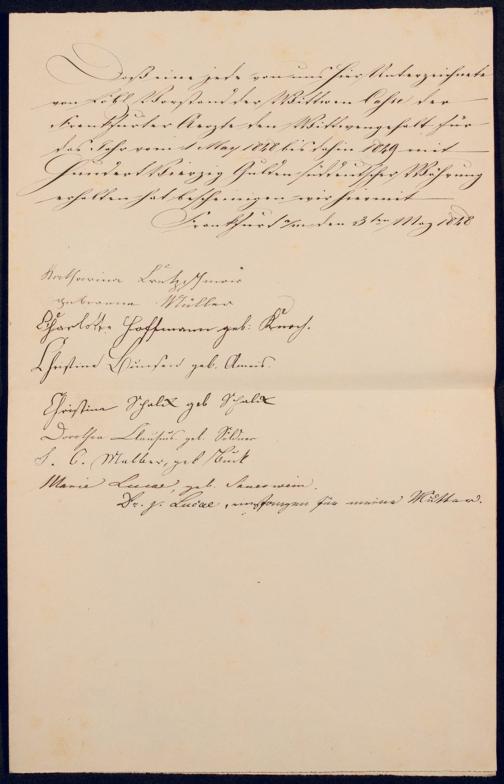 Daß eine jede von uns hier Unterzeichnete
von Löbl. Vorstand der Wittwen Casse der
Frankfurter Aerzte den Wittwengehalt für
das Jahr vom 1 May 1848 bis dahin 1849 mit
Hundert Vierzig Gulden süddeutscher Währung
erhalten hat bescheinigen wir hiermit
Frankfurt a/m den 3ten May 1848
Katharina
geborene Müller
Charlotte Hoffmann geb: Knoch.
Christine Bunsen geb.
Christine Schalck geb Schalck
Dorothea Clausius geb. Söldner
S. C. Melber, geb Buck
Marie Lucae, geb. Feuerwein.
Dr. g. Lucae, empfangen für meine Mutter.